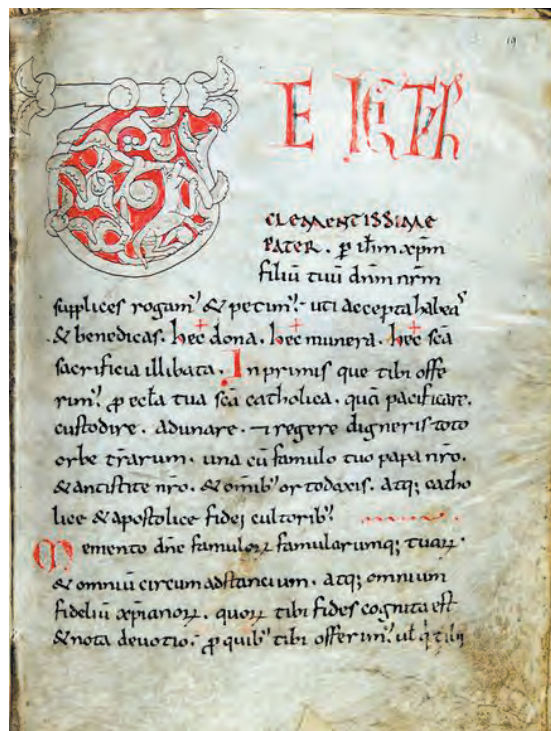 19
TE IGIT̃
CLEMENTISSIME
PATER. ꝑ ih̅m xp̅m
filiū tuū dn̅m nr̅m
supplices rogamꝰ & petimꝰ. uti accepta habeas
& benedicas. hec dona. hec munera. hec sc̅a
sacrificia illibata. Inprimis que tibi offe
rimꝰ ꝓ eccl̅a tua sc̅a catholica. quā pacificare.
custodire. adunare. ⁊ regere digneris toto
orbe tr̅arum. una cū famulo tuo papa nr̅o.
& antistite nr̅o. & om̅ibꝰ ortodoxis. atq; catho
lice & apostolice fidei cultoribꝰ
Memento dn̅e famuloꝝ famularumq; tuaꝝ.
& omniū circum adstancium. atq; omnium
fideliū xp̅ianoꝝ. quoꝝ tibi fides cognita est
& nota deuotio. ꝓ quibꝰ tibi offerimꝰ ul̅ q̇ tibi